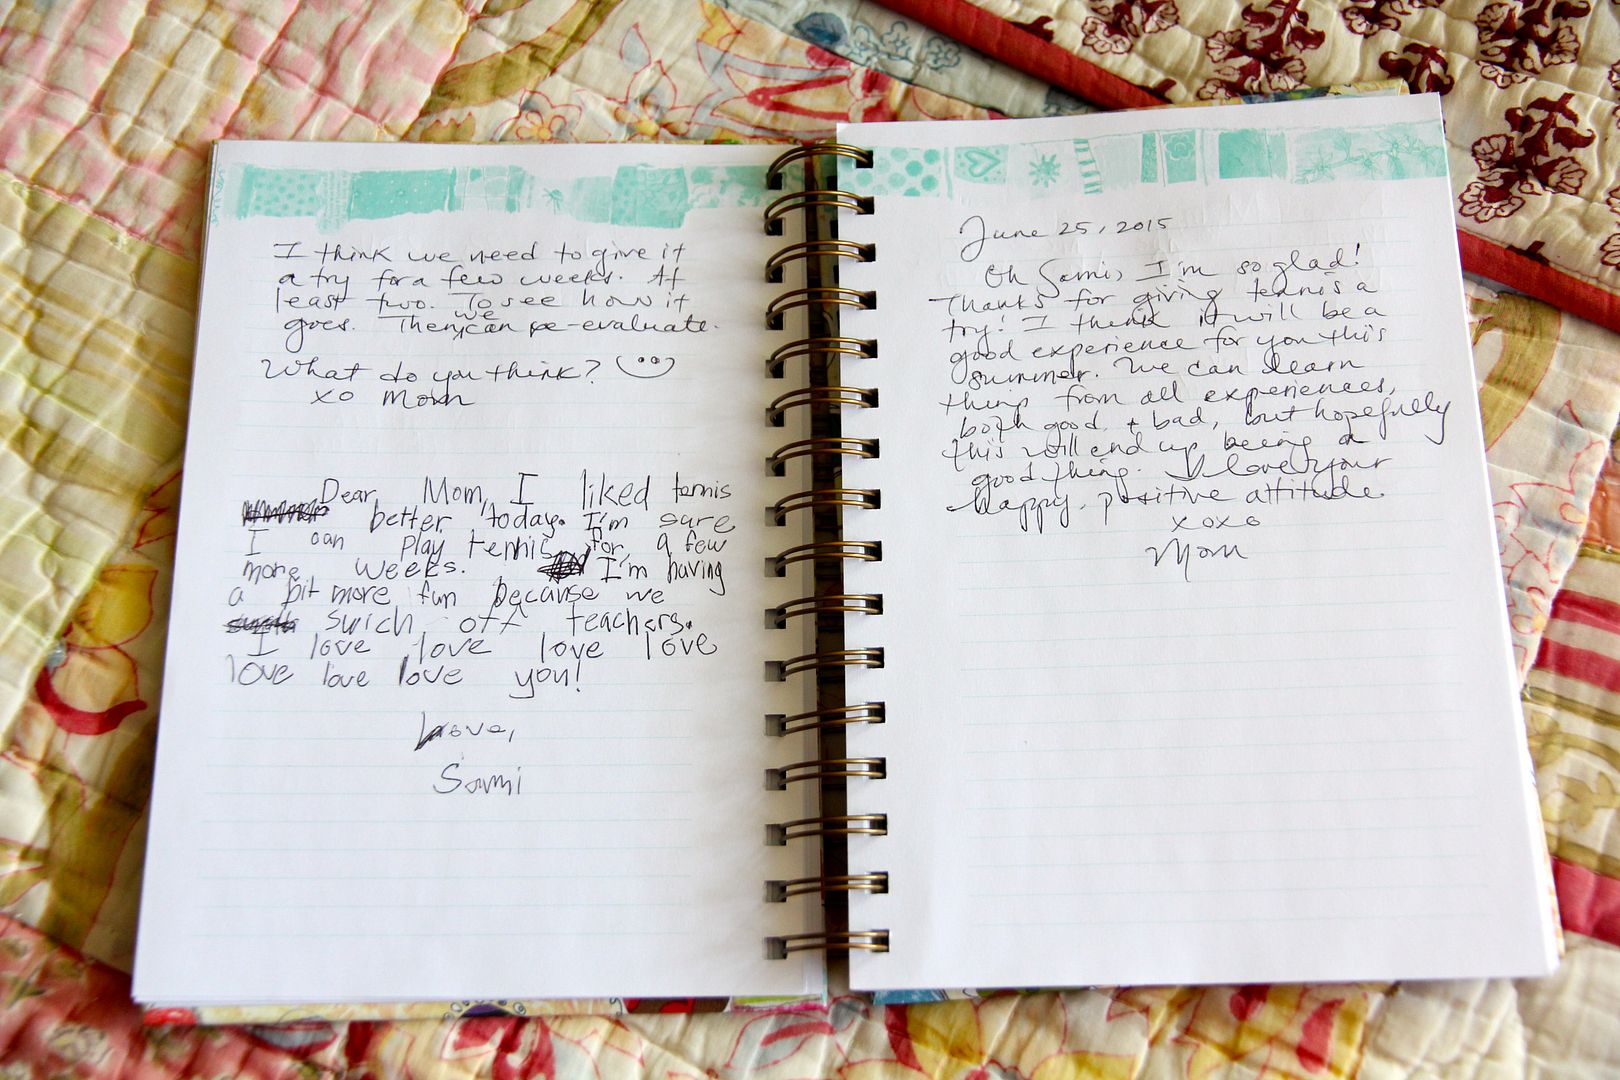 I think we need to give it
a try for a few weeks. At
least two. To see how it
goes. Then we can re-evaluate.
What do you think?
xo Mom
Dear Mom, I liked tennis
better today. I'm sure
I can play tennis for a few
more weeks. I'm having
a bit more fun because we
swich off teachers.
I love love love love
love love love you!
Love,
Sami
June 25, 2015
Oh Sami, I'm so glad!
Thanks for giving tennis a
try! I think it will be a
good experience for you this
summer. We can learn
things from all experiences,
both good + bad, but hopefully
this will end up being a
good thing. I love your
happy, positive attitude.
xoxo
Mom